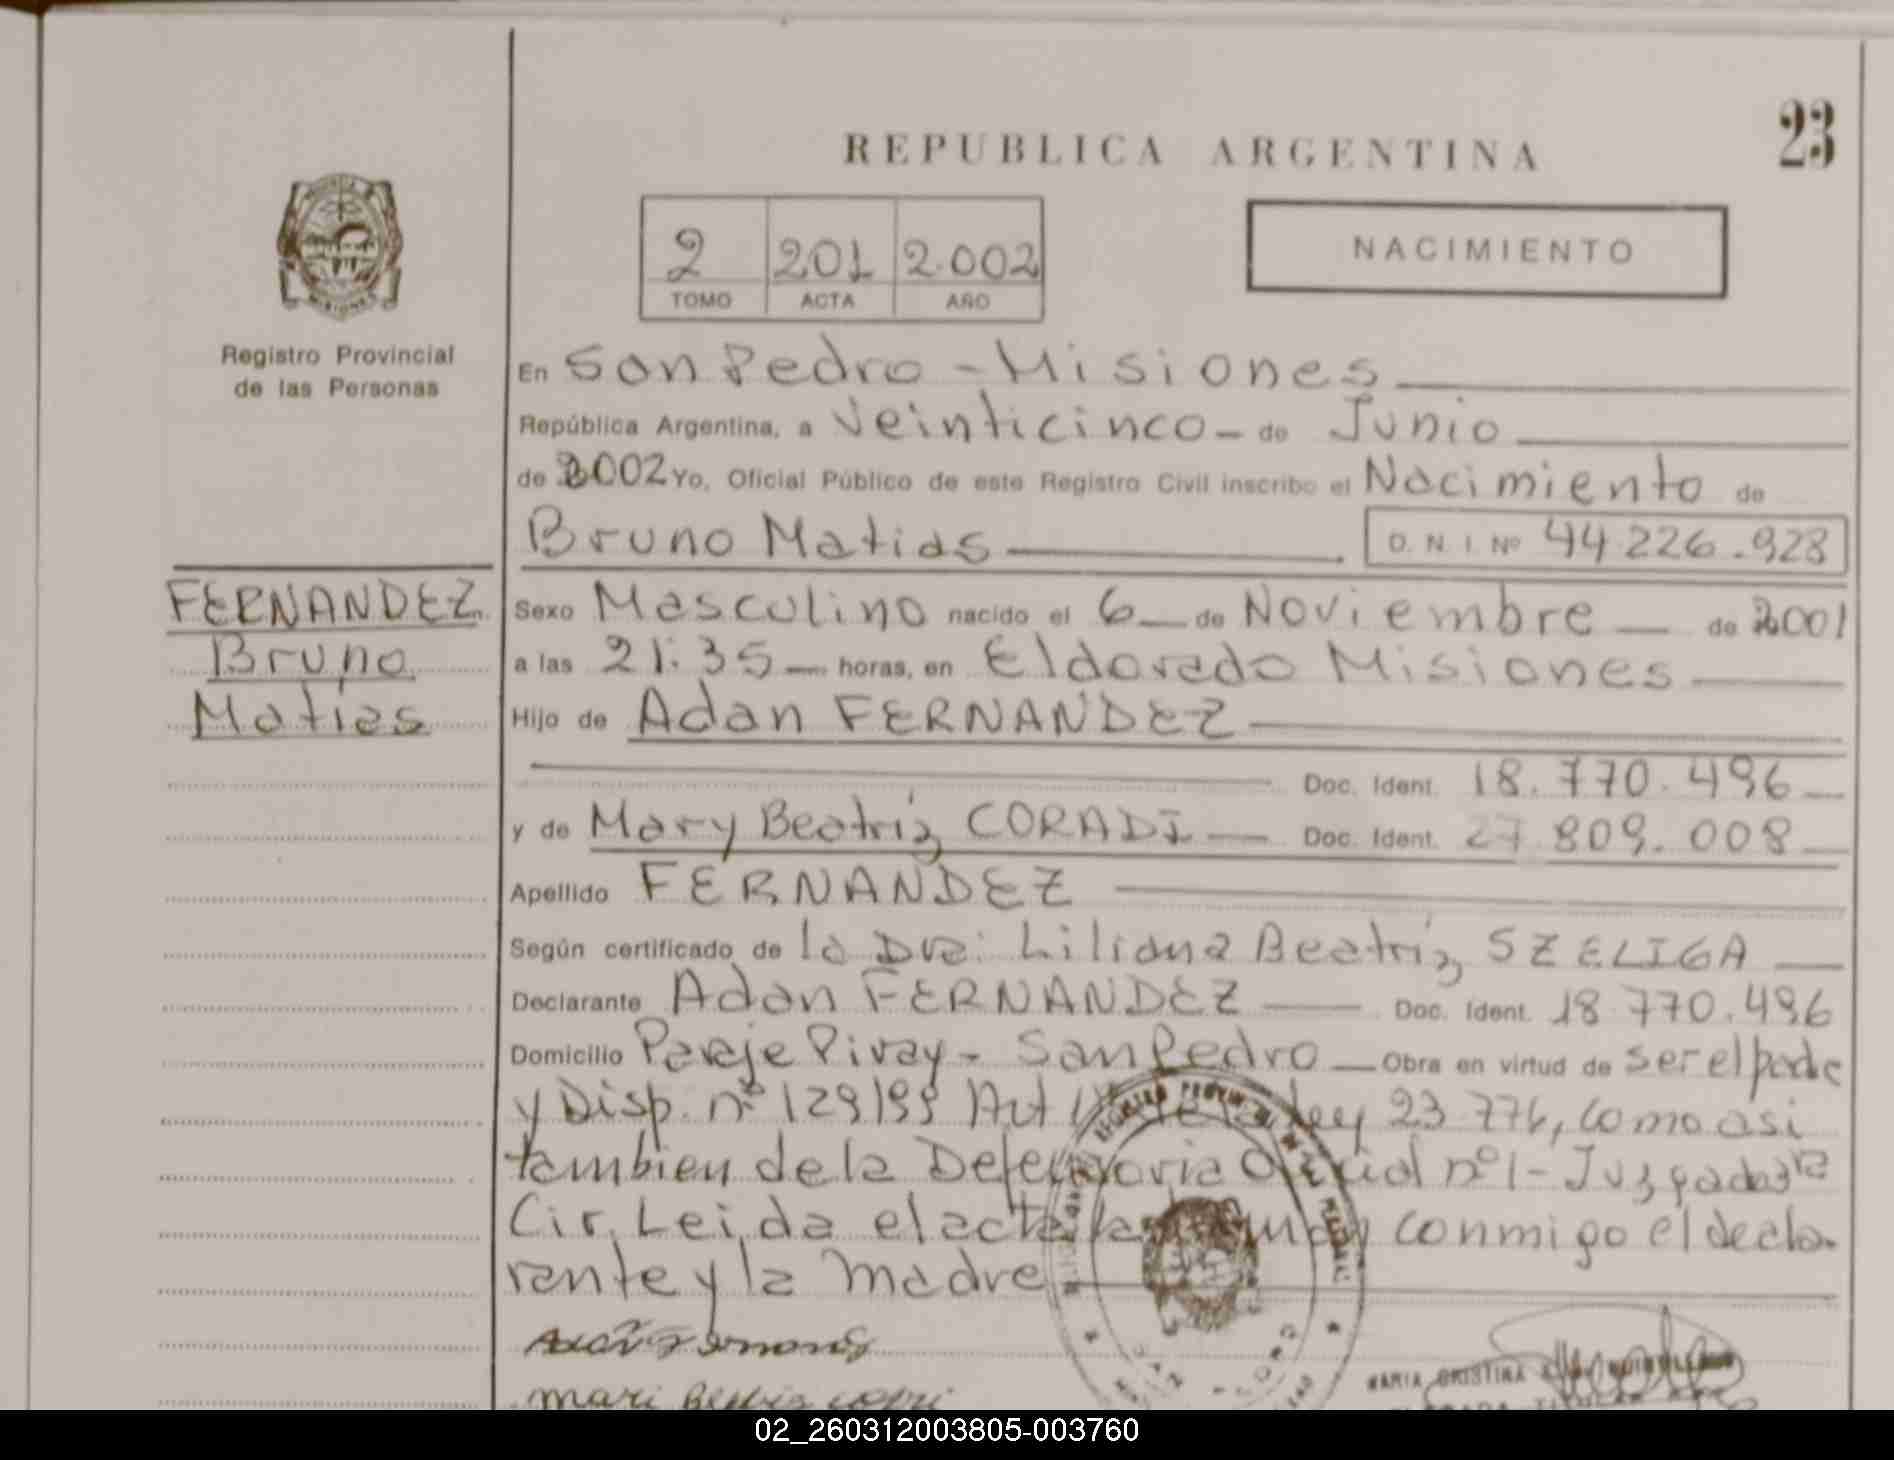 23
REPUBLICA ARGENTINA
2 201 2.002
TOMO ACTA AÑO
NACIMIENTO
MISIONES
Registro Provincial
de las Personas
FERNANDEZ
Bruno
Matias
En San Pedro - Misiones
República Argentina, a Veinticinco de Junio
de 2002 Yo, Oficial Público de este Registro Civil inscribo el Nacimiento de
Bruno Matias D. N. I. Nº 44.226.928
Sexo Masculino nacido el 6 de Noviembre de 2001
a las 21:35 horas, en Eldorado Misiones
Hijo de Adan FERNANDEZ
Doc. Ident. 18.770.496
y de Mary Beatriz CORADI Doc. Ident. 27.809.008
Apellido FERNANDEZ
Según certificado de la Dra: Liliana Beatriz SZELIGA
Declarante Adan FERNANDEZ Doc. Ident. 18.770.496
Domicilio Paraje Piray - San Pedro Obra en virtud de ser el padre
y Disp. nº 129/99 Art de la Ley 23.776, como asi
tambien de la Defensoria Oficial nº 1 - Juzgados 1ª
Cir. Leida el acta la firman conmigo el decla-
rante y la madre
MARIA CRISTINA
02_260312003805-003760